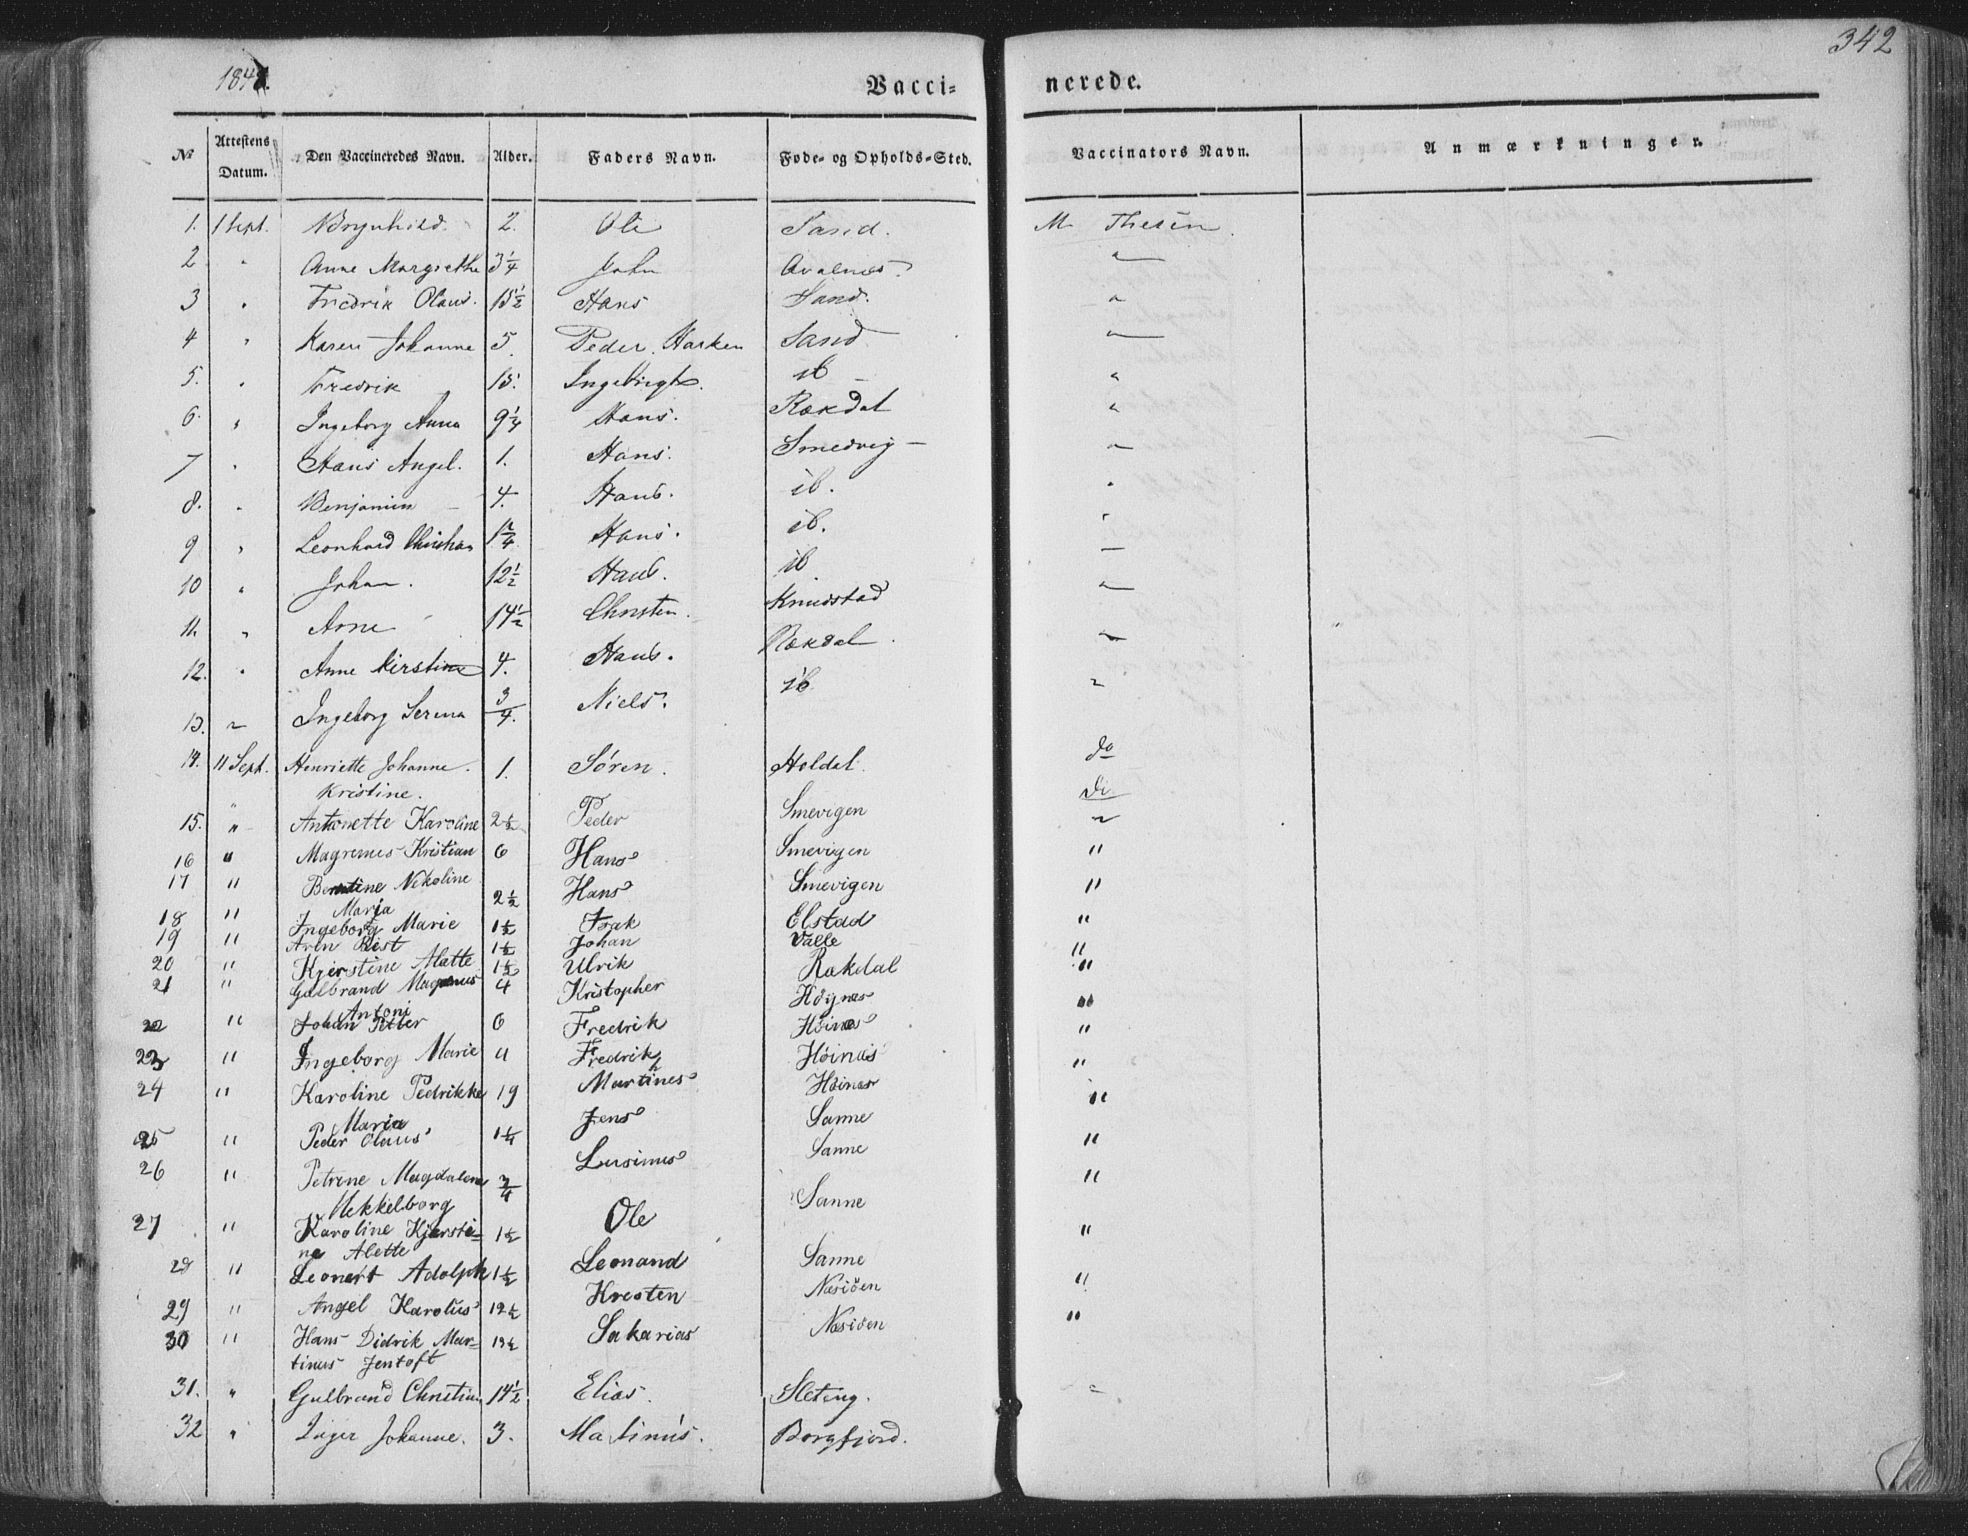 342
1848.
Vacci- nerede.
No Attestens Datum. Den Vaccineredes Navn. Alder. Faders Navn. Føde- og Opholds-Sted. Vaccinators Navn. Anmærkninger.
1. 1 Sept. Brynhild. 2. Ole Sand. M Thesen.
2 " Anne Margrethe 3 1/4 John Avalnes. "
3 " Fredrik Olaus. 15 1/2 Hans Sand. "
4 " Karen Johanne 5. Peder Harken Sand "
5. " Fredrik 15. Ingebrigt. ib "
6. " Ingeborg Anna 9 1/4 Hans. Rækdal "
7 " Hans Angel. 1. Hans. Smedvig — "
8. " Benjamin — 4. Hans. ib. "
9 " Leonhard Christian 1 2/4 Hans. ib. "
10 " Johan. 12 1/2 Hans. ib "
11. " Arne 14 1/2 Christen. Knudstad "
12. " Anne Kirstine 4. Hans. Rækdal. "
13. " Ingeborg Serina 3/4. Niels. ib. "
14. 11 Sept. Henriette Johanne. 1. Søren. Holdal. do
Kristine. do
15. " Antonette Karoline 2 1/2 Peder Smevigen "
16 " Magrenus Kristian 6 Hans Smevigen "
17 " Berntine Nekoline 2 1/2 Hans Smevigen "
Maria
18 " Ingeborg Marie 1 1/2 Isak Elstad "
19 " Aren Rist 1 1/2 Johan Valle "
20 " Kjerstine Alatte 1 1/2 Ulrik Rakdal "
21 " Gulbrand Magnus 4 Kristopher Höynes "
Antoni
22 " Johan Peter 6 Fredrik Höines "
23 " Ingeborg Marie 4 Fredrik Höines "
24 " Karoline Pedrikke 19 Marthines Höines "
Maria
25 " Peder Olaus 1 1/4 Jens Sanne "
26 " Petrine Magdalena 3/4 Lusimus Sanne "
Hekkelborg
27 " Karoline Kjersti- 1 1/2 Ole Sanne "
ne Alette
28 " Leonert Adolph 1 1/2 Leonand Sanne "
29 " Angel Karolus 12 1/2 Kresten Næsiöen "
30 " Hans Didrik Mar- 13 1/2 Sakarias Næsiöen
tinus Jentoft
31. " Gulbrand Christian 14 1/2 Elias. Sleteng. "
32 " Inger Johanne. 3. Matinus. Borgfjord.